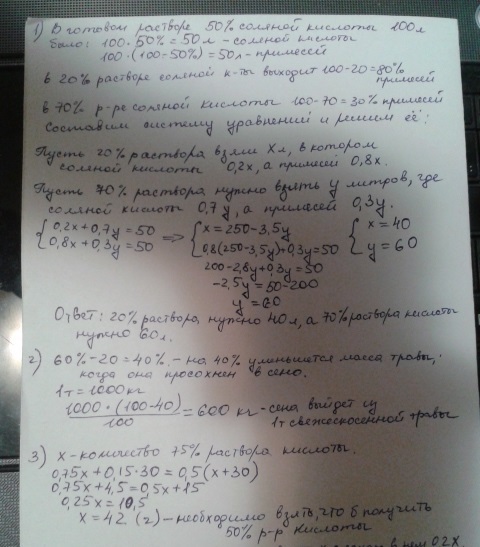 1) В готовом растворе 50% соляной кислоты 100л
было: 100·50% = 50л - соляной кислоты
100·(100-50%) = 50л - примесей
в 20% растворе соляной к-ты выходит 100-20=80% примесей
в 70% р-ре соляной кислоты 100-70=30% примесей
Составим систему уравнений и решим её:
Пусть 20% раствора взяли Xл, в котором
соляной кислоты 0,2x, а примесей 0,8x.
Пусть 70% раствора нужно взять y литров, где
соляной кислоты 0,7y, а примесей 0,3y.
{0,2x+0,7y=50 => {x=250-3,5y {x=40
{0,8x+0,3y=50 {0,8(250-3,5y)+0,3y=50 {y=60
200-2,8y+0,3y=50
-2,5y=50-200
y=60
Ответ: 20% раствора нужно 40л, а 70% раствора кислоты
нужно 60л.
2) 60%-20=40% - на 40% уменьшется масса травы,
когда она просохнет в сено.
1т=1000кг
1000·(100-40)/100 = 600 кг - сена выйдет из
1т свежескошенной травы
3) x - количество 75% раствора кислоты.
0,75x+0,15·30=0,5(x+30)
0,75x+4,5=0,5x+15
0,25x=10,5
x=42 (г) - необходимо взять, чтоб получить
50% р-р кислоты
в нем 0,2x